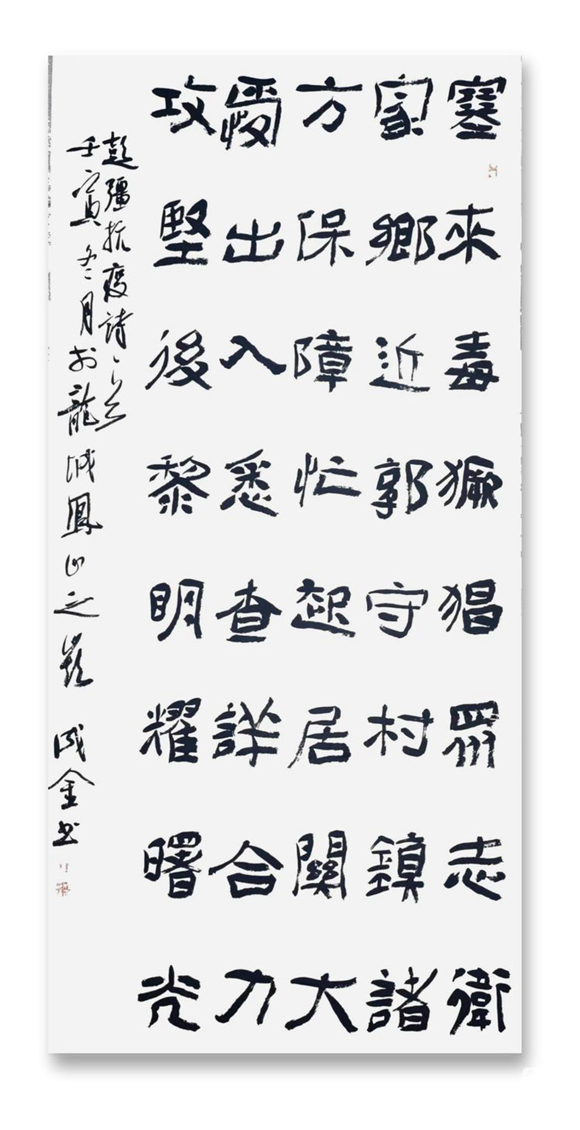 寒來毒獗猖眾志衛
家鄉近郭守村鎮諸
方保障忙起居關大
愛出入悉查詳合力
攻堅後黎明耀曙光
彭疆抗疫詩一首
壬寅冬月於龍城鳳山之巔 成金書